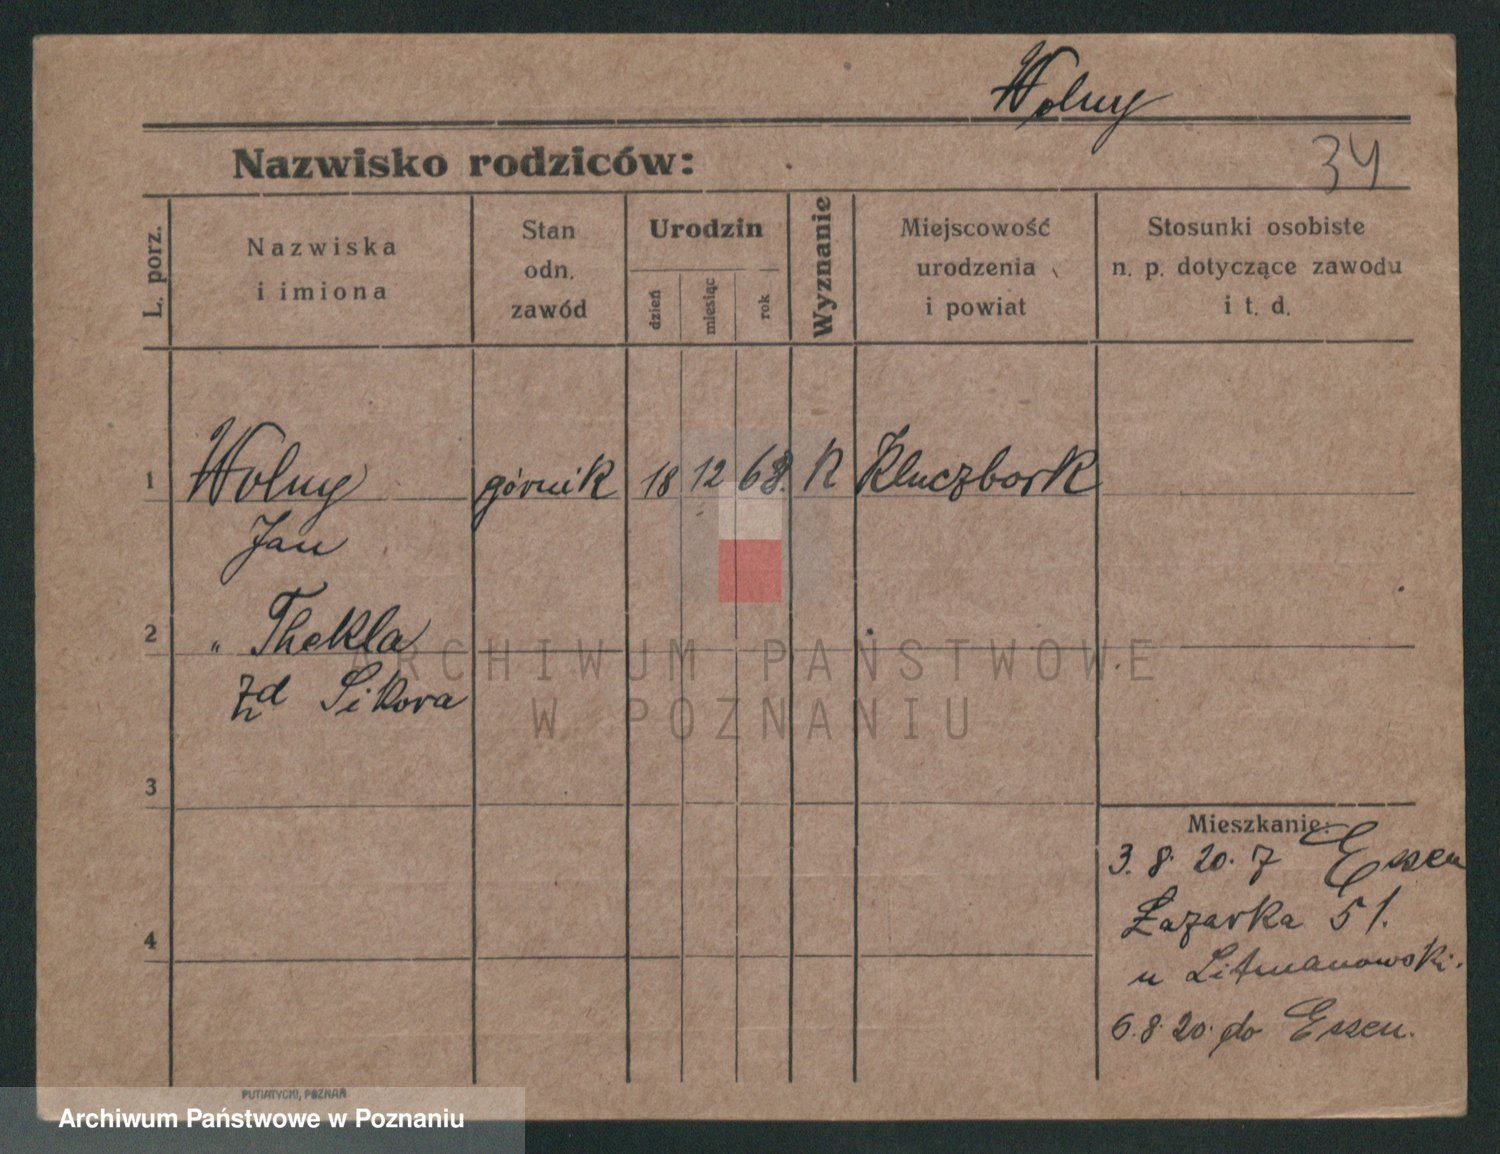 Wolny
Nazwisko rodziców:
34
L. porz.
Nazwiska
i imiona
Stan
odn.
zawód
Urodzin
dzień
miesiąc
rok
Wyznanie
Miejscowość
urodzenia
i powiat
Stosunki osobiste
n. p. dotyczące zawodu
i t. d.
1 Wolny górnik 18 12 68. K Kluczbork
Jan
2 " Thekla
zd Sikora
3
4
Mieszkanie:
3. 8. 20. z Essen
Łazarka 51.
u Litmanowski.
6. 8. 20. do Essen.
ARCHIWUM PAŃSTWOWE
W POZNANIU
PUTIATYCKI, POZNAŃ
Archiwum Państwowe w Poznaniu